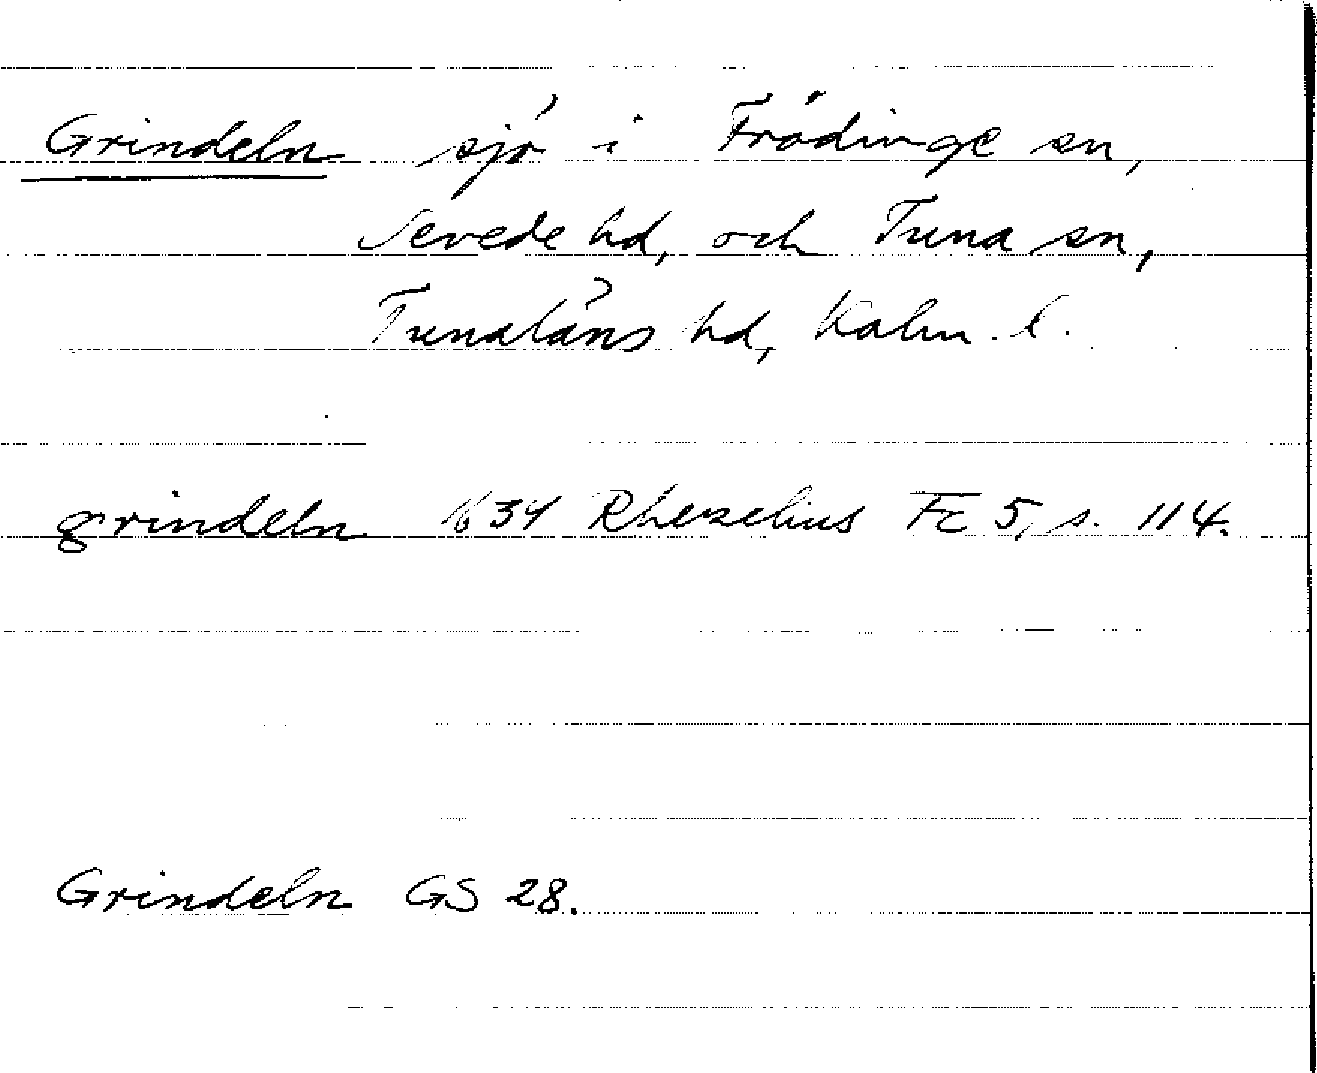 Grindeln sjö i Frödinge sn,
Sevede hd, och Tuna sn,
Tunaläns hd, Kalm. l.
grindeln 1634 Rhezelius Fc 5, s. 114.
Grindeln GS 28.